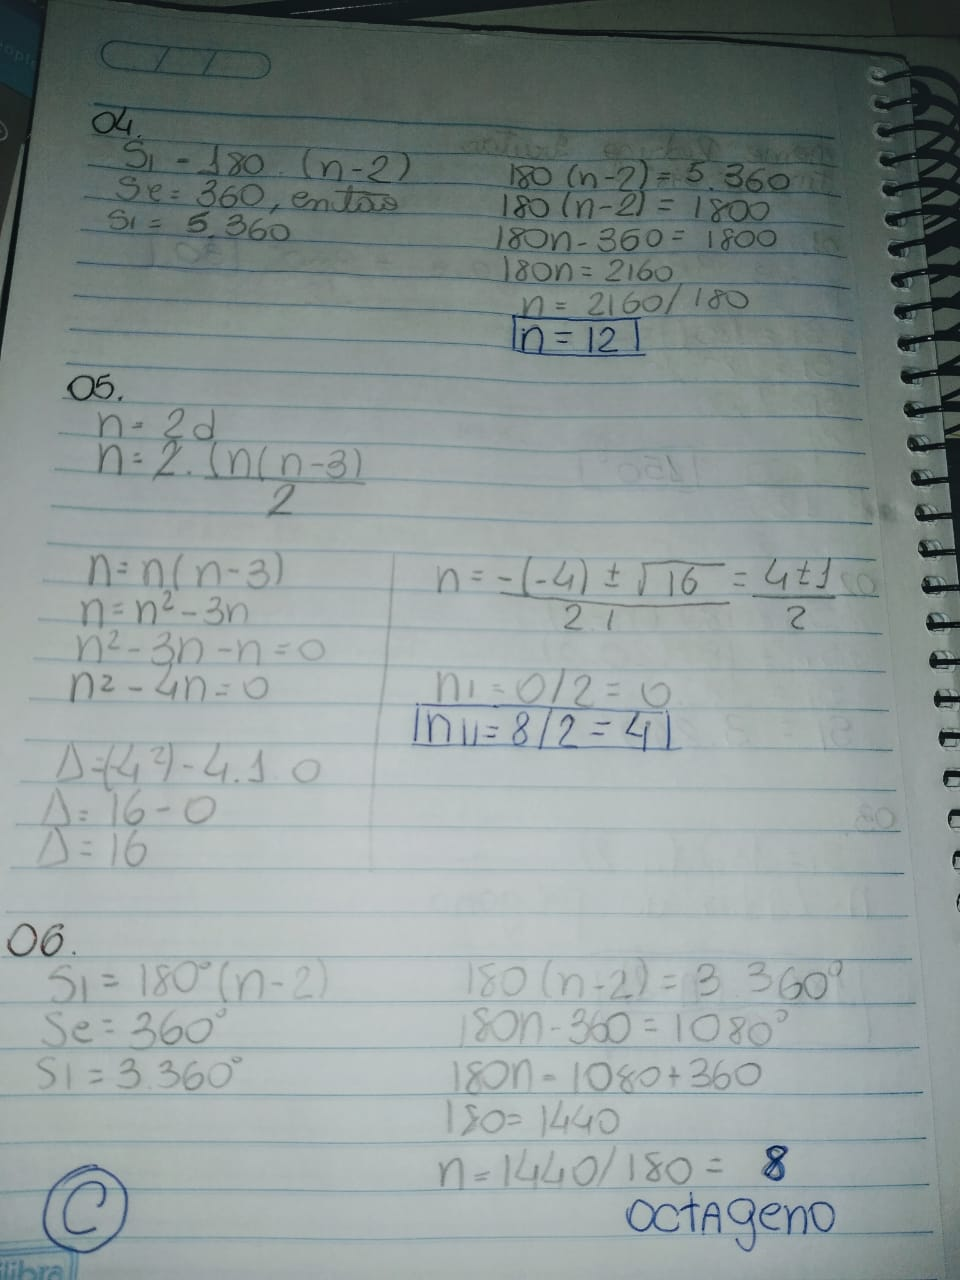 04.
Si = 180 . (n-2)
Se = 360, então
Si = 5.360
180 (n-2) = 5.360
180 (n-2) = 1800
180n - 360 = 1800
180n = 2160
n = 2160/180
n = 12
05.
n = 2d
n = 2. (n(n-3)
2
n = n(n-3)
n = n² - 3n
n² - 3n - n = 0
n² - 4n = 0
Δ=(-4²) - 4.1 0
Δ = 16 - 0
Δ = 16
n = -(-4) ± √16 = 4±1
2 1 2
n1 = 0/2 = 0
n11 = 8/2 = 4
06.
Si = 180° (n-2)
Se = 360°
Si = 3.360°
180 (n-2) = 3 360°
180n - 360 = 1080°
180n = 1080 + 360
180 = 1440
n = 1440/180 = 8
OCTAgeno
C
ilibra